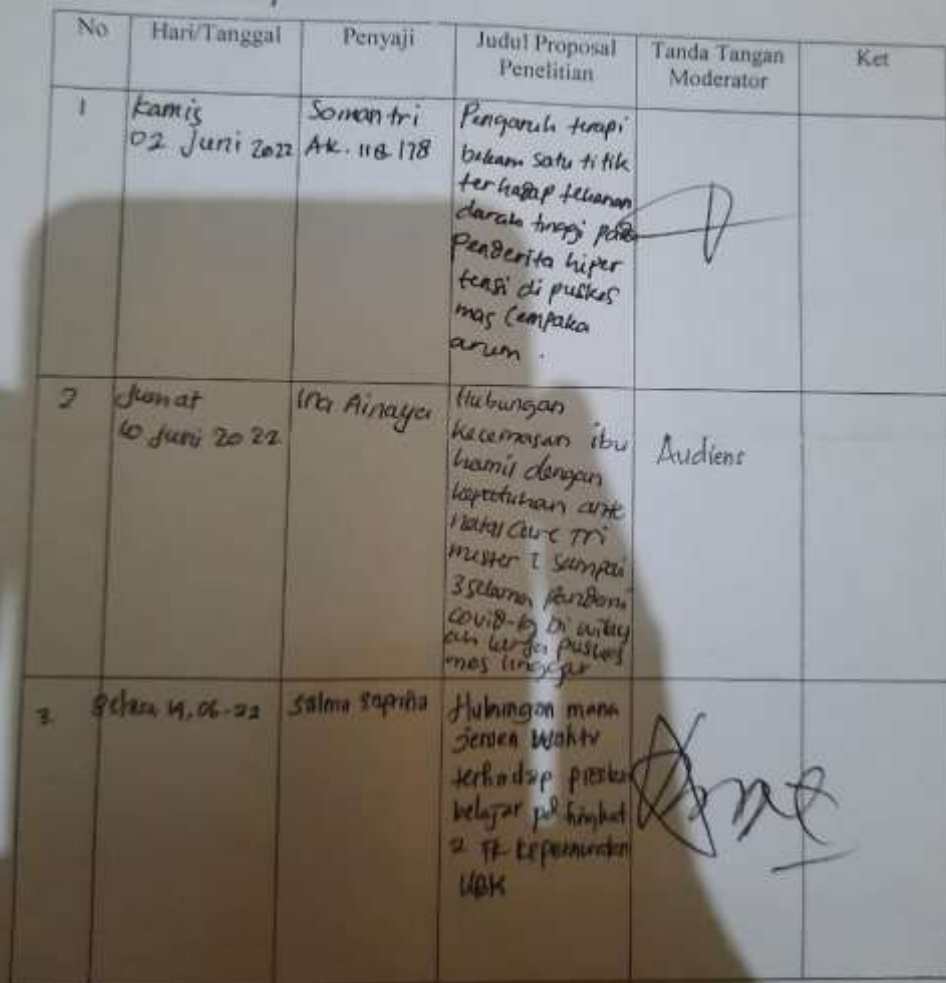 No Hari/Tanggal Penyaji Judul Proposal Penelitian Tanda Tangan Moderator Ket
1
Kamis
02 Juni 2022
Somantri
AK. 118 178
Pengaruh terapi
bekam satu titik
terhadap tekanan
darah tinggi pada
Penderita hiper
tensi di puskes
mas Cempaka
arum.
2
Jumat
10 Juni 2022
Ina Ainaya
Hubungan
kecemasan ibu
hamil dengan
kepatuhan ante
natal Care Tri
mester 1 sampai
3 selama pandemi
covid-19 Di wilay
ah kerja puskes
mas
Audiens
3.
Selasa 14.06-22
Salma
Hubungan mana
jemen waktu
terhadap
belajar pd tingkat
2 FK Keperawatan
UBK